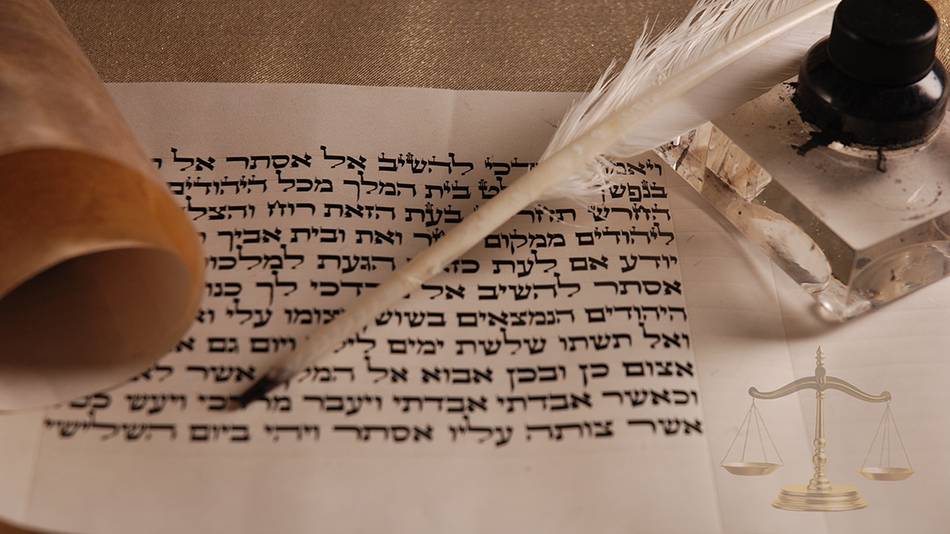 להשיב אל אסתר אל
בית המלך מכל היהודים
החרש בעת הזאת רוח
ליהודים ממקום ואת ובית אביך
יודע אם לעת הגעת
אסתר להשיב אל לך
היהודים הנמצאים עלי
ואל תשתו שלשת ימים ויום גם
אצום כן ובכן אבוא אל אשר לא
וכאשר אבדתי אבדתי ויעבר ויעש
אשר צותה עליו אסתר ויהי ביום השלישי